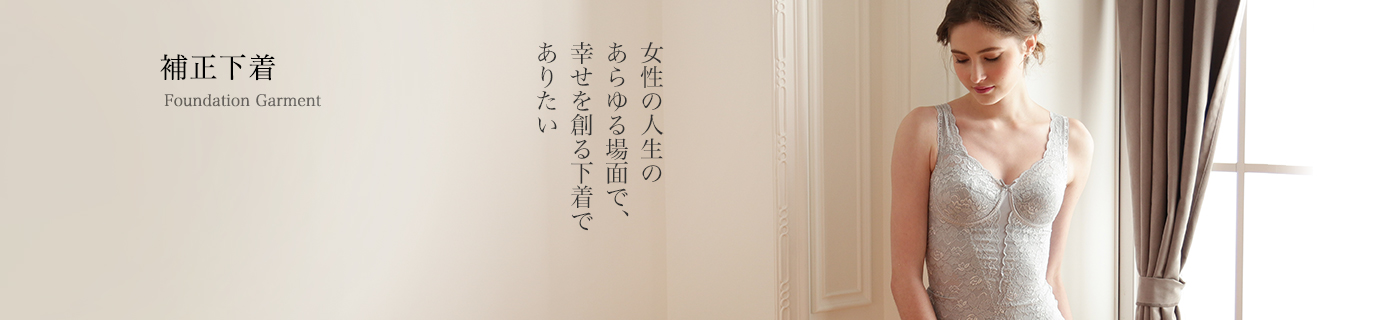 補正下着
Foundation Garment
女性の人生の
あらゆる場面で、
幸せを創る下着で
ありたい